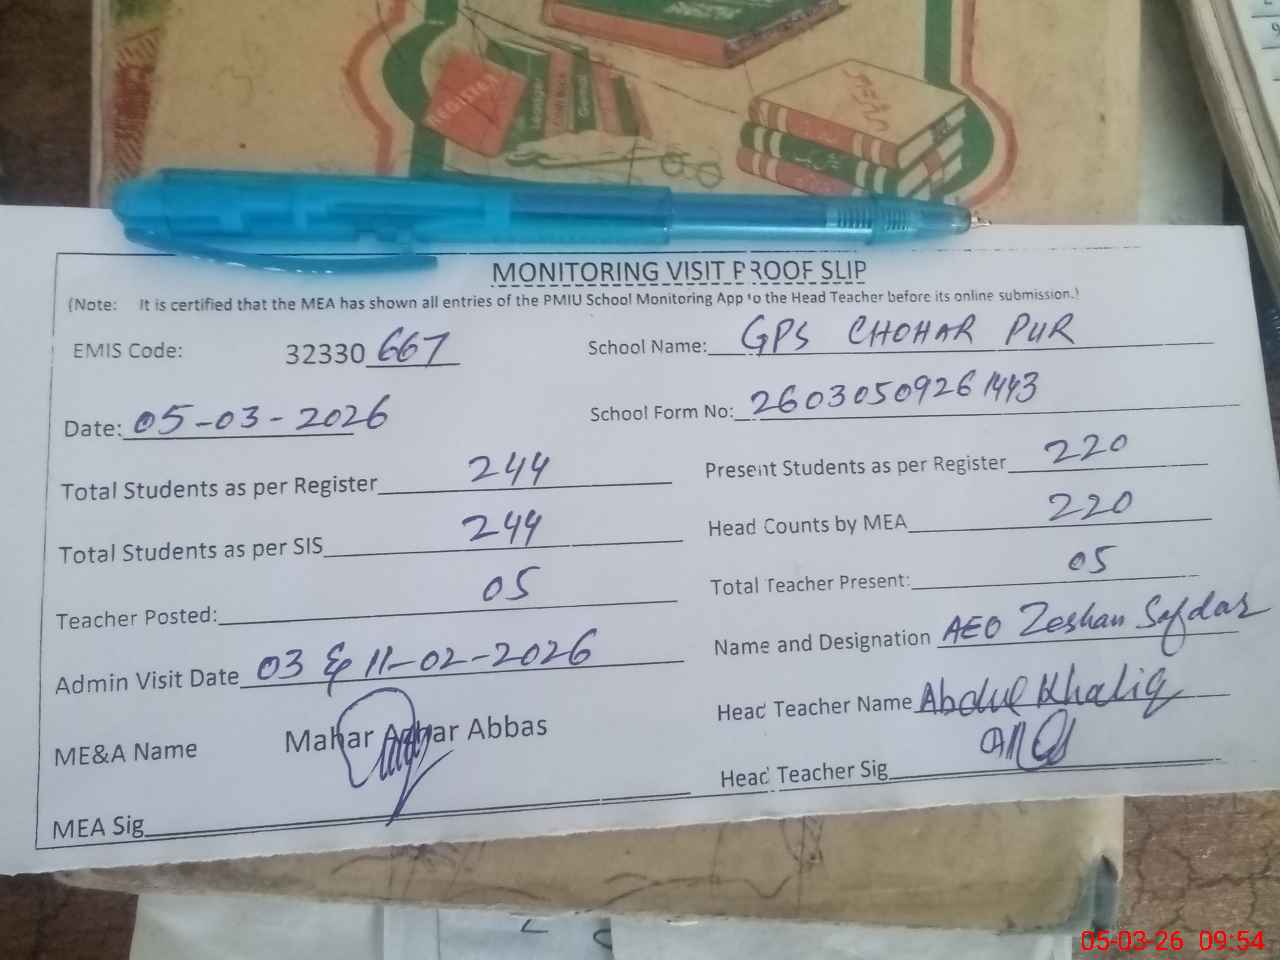 REGISTER
Ledger
Cash Book
General
MONITORING VISIT PROOF SLIP
(Note: It is certified that the MEA has shown all entries of the PMIU School Monitoring App to the Head Teacher before its online submission.)
EMIS Code: 32330 667 School Name: GPS CHOHAR PUR
Date: 05-03-2026 School Form No: 26030509261443
Total Students as per Register 244 Present Students as per Register 220
Total Students as per SIS 244 Head Counts by MEA 220
Teacher Posted: 05 Total Teacher Present: 05
Admin Visit Date 03 & 11-02-2026 Name and Designation AEO Zeshan Safdar
ME&A Name Mahar Azhar Abbas Head Teacher Name Abdul Khaliq
MEA Sig Head Teacher Sig
05-03-26 09:54